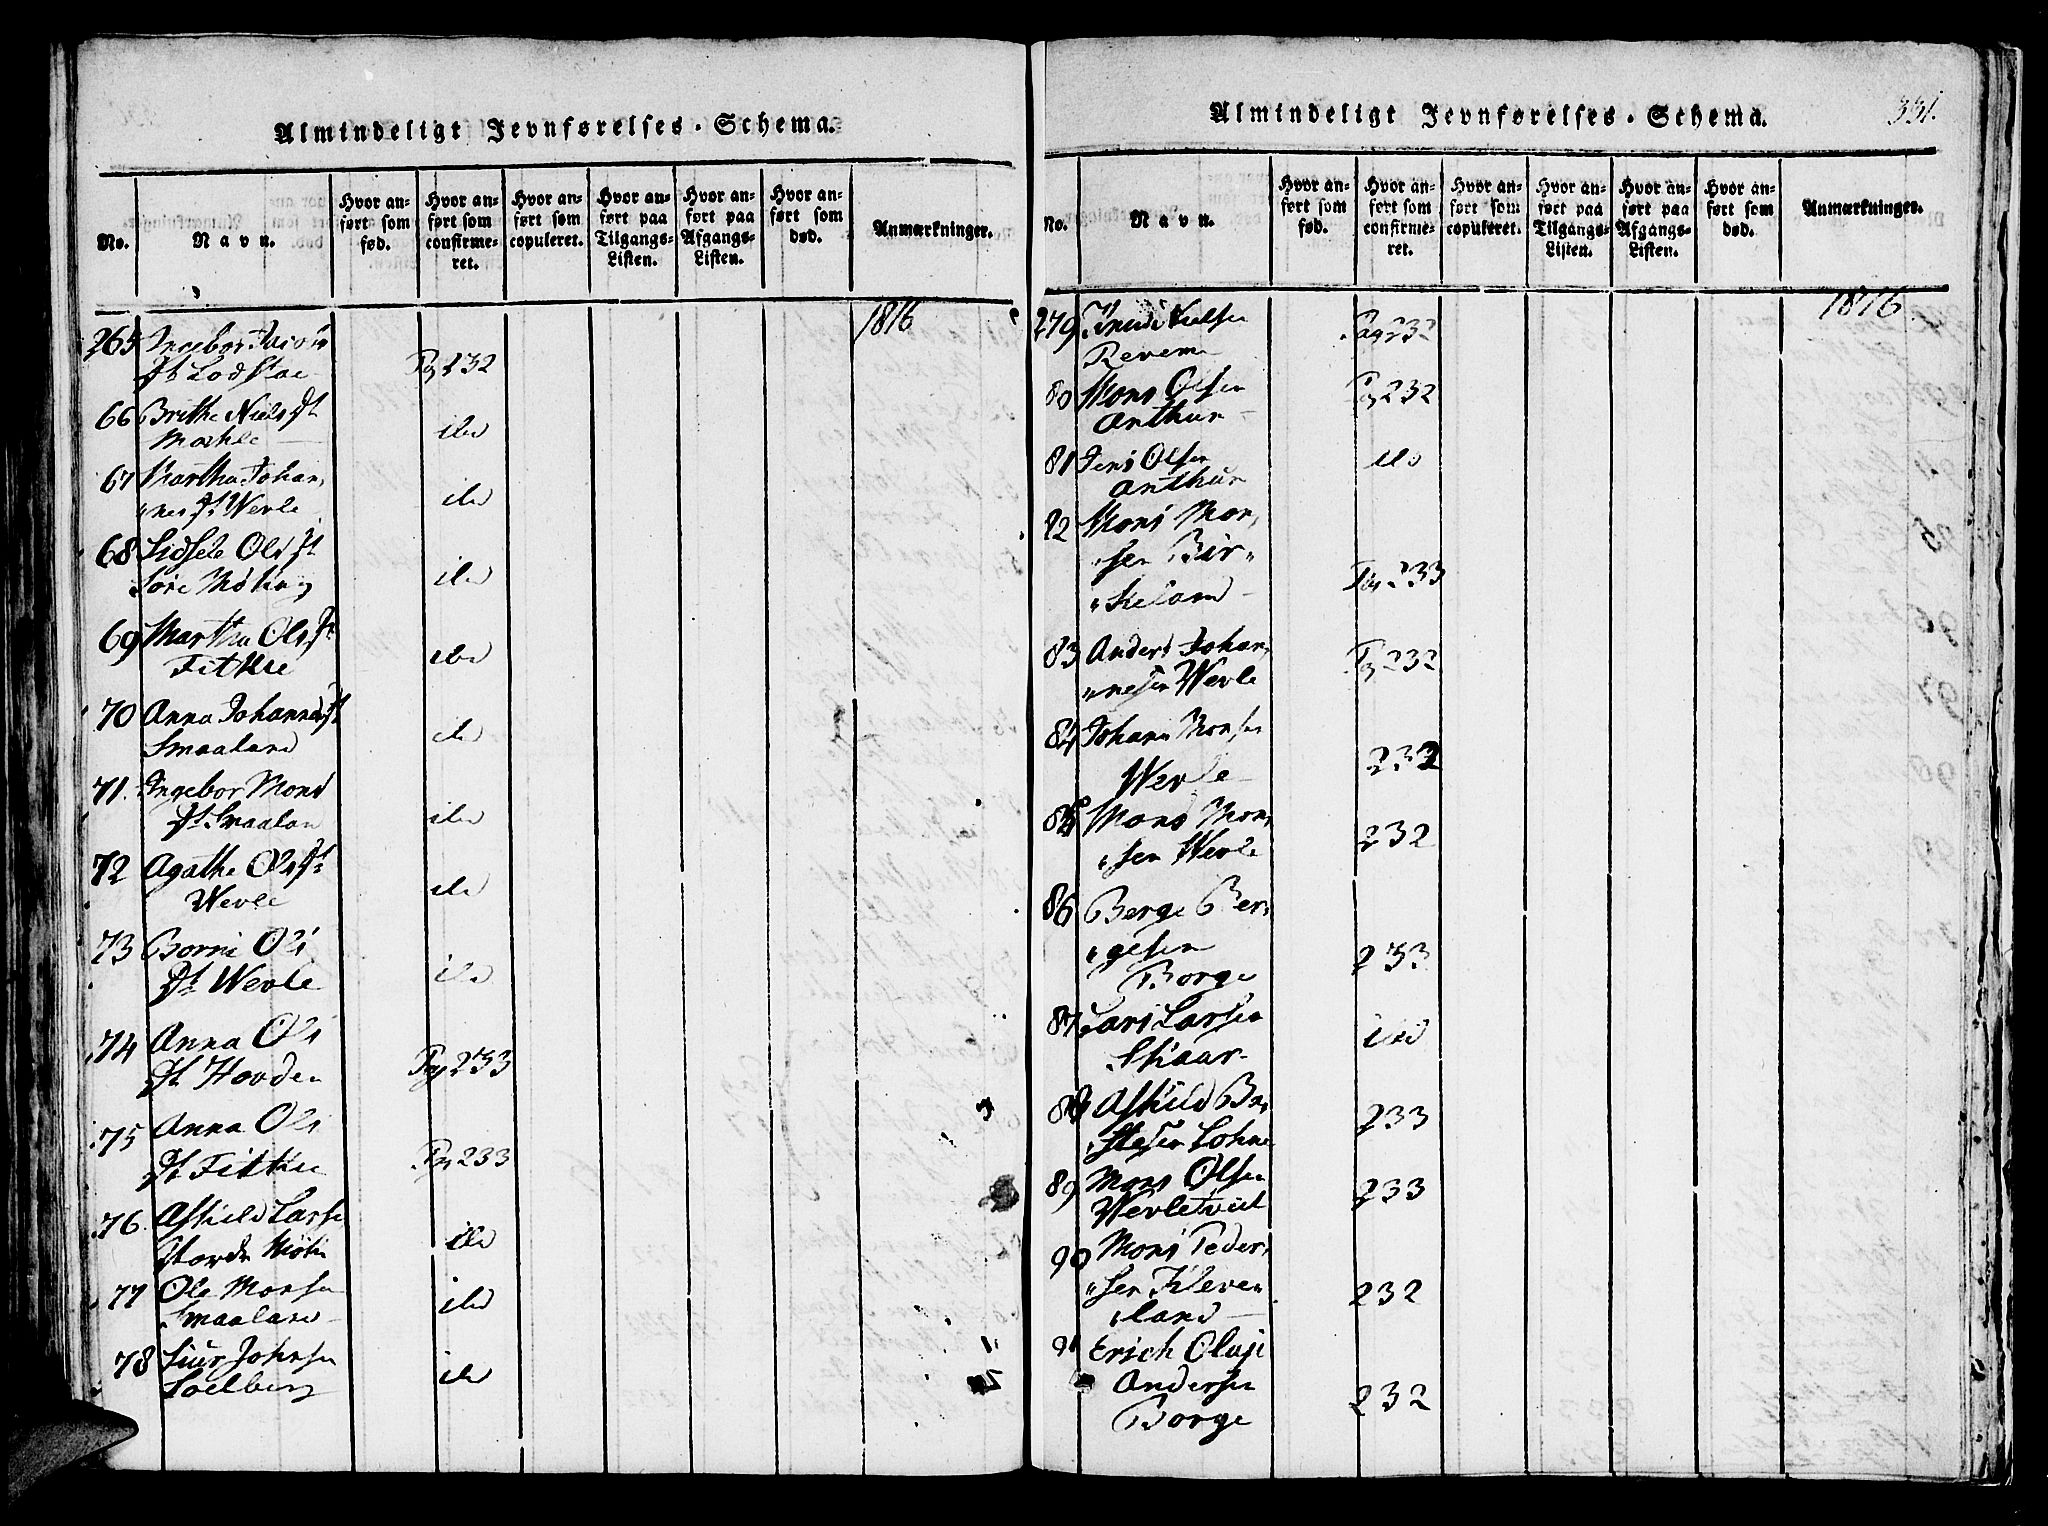 Almindeligt Jevnførelses-Schema.
No.
Navn.
Hvor anført som fød.
Hvor anført som confirmeret.
Hvor anført som copuleret.
Hvor anført paa Tilgangs-Listen.
Hvor anført paa Afgangs-Listen.
Hvor anført som død.
Anmærkninger.
1816
265 Ingebor
Dt Lodstøe Pag 232
66 Brithe Niels Dt
Mæhle ibd
67 Martha Johan,
"nes Dt Werle ibd
68 Sidsele Ols Dt
Søre Møking ibd
69 Martha Ols Dt
Fitkie ibd
70 Anna Johannes Dt
Smaaland ibd
71. Ingebor Mons
Dt Smaalan ibd
72 Agathe Ols Dt
Werle ibd
73 Borni Ols
Dt Werle ibd
74 Anna Ols
Dt Hovden Pag 233
75 Anna Ols
Dt Fitkie Pag 233
76. Askield Larse
Nordr Møki ibd
77 Ole Monsen
Smaaland ibd
78 Siur Johnsen
Soelberg ibd
Almindeligt Jevnførelses-Schema.
331.
No.
Navn.
Hvor anført som fød.
Hvor anført som confirmeret.
Hvor anført som copuleret.
Hvor anført paa Tilgangs-Listen.
Hvor anført paa Afgangs-Listen.
Hvor anført som død.
Anmærkninger.
1816.
279 Knud Nielsen
Revem Pag 232
80 Mons Olsen
Arthun Pag 232
81 Jens Olsen
Arthun ibd
82 Mons Mon,
"sen Bir"
"keland Pag 233
83 Anders Johan,
"nesen Werle Pag 232
84 Johan Monsen
Werle 232
85 Mons Mon,
"sen Werle 232
86 Berge Ber,
"gesen
Borge 233
87 Lars Larsen
Skaar ibd
88 Askield Ba,
"stesen Lohne 233
89 Mons Olsen
Werletveit 233
90 Mons Peder,
"sen Kleven
"land 232
91 Erich Olaji
Andersen
Borge 232